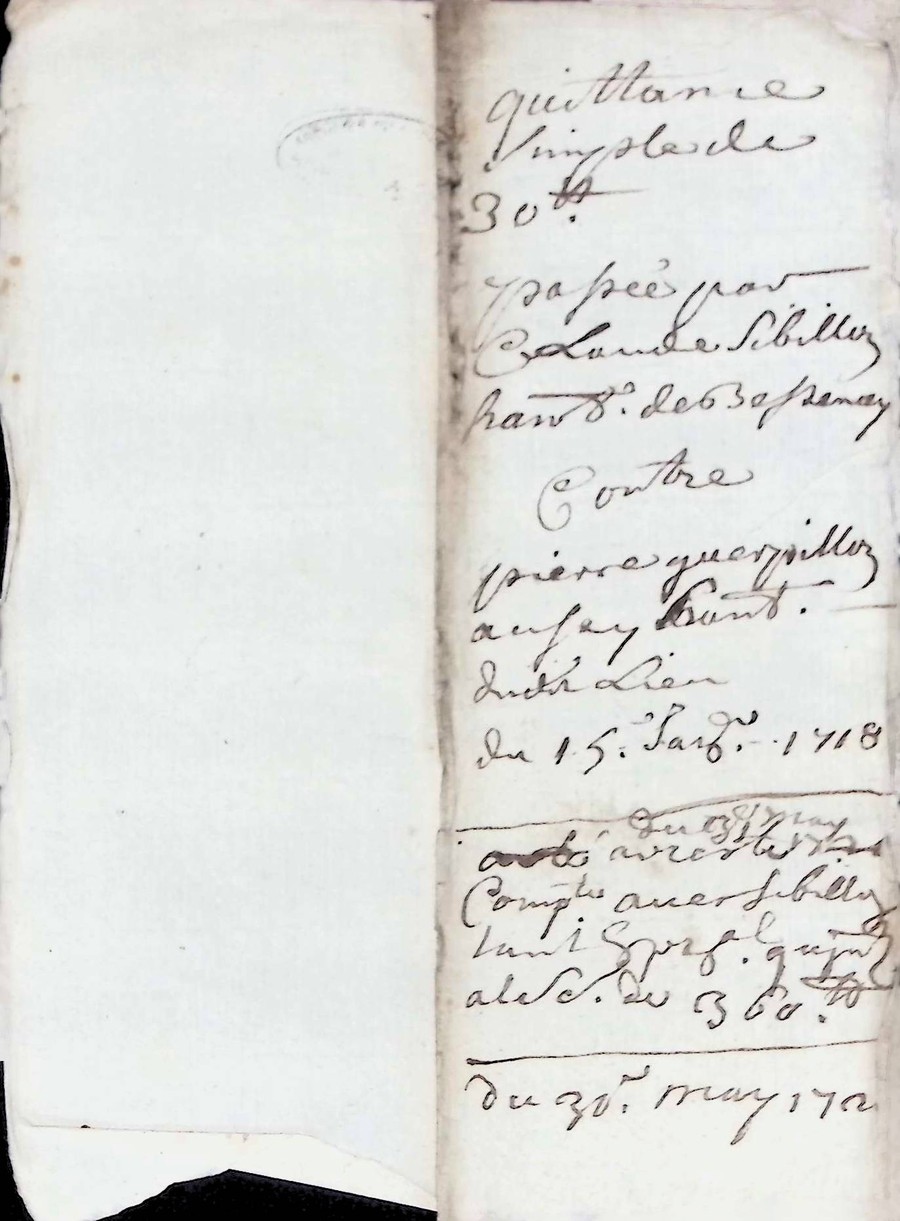 quittance
simple de
30 ₶.
passée par
Claude Sibilloz
hant. de Bessenay
Contre
pierre guerpilloz
aussy hant.
dudit Lieu
du 15. Janv. 1718
du 30 may
arresté
Compte avec Sibilloz
tant
de 360. ₶
du 30. may 172